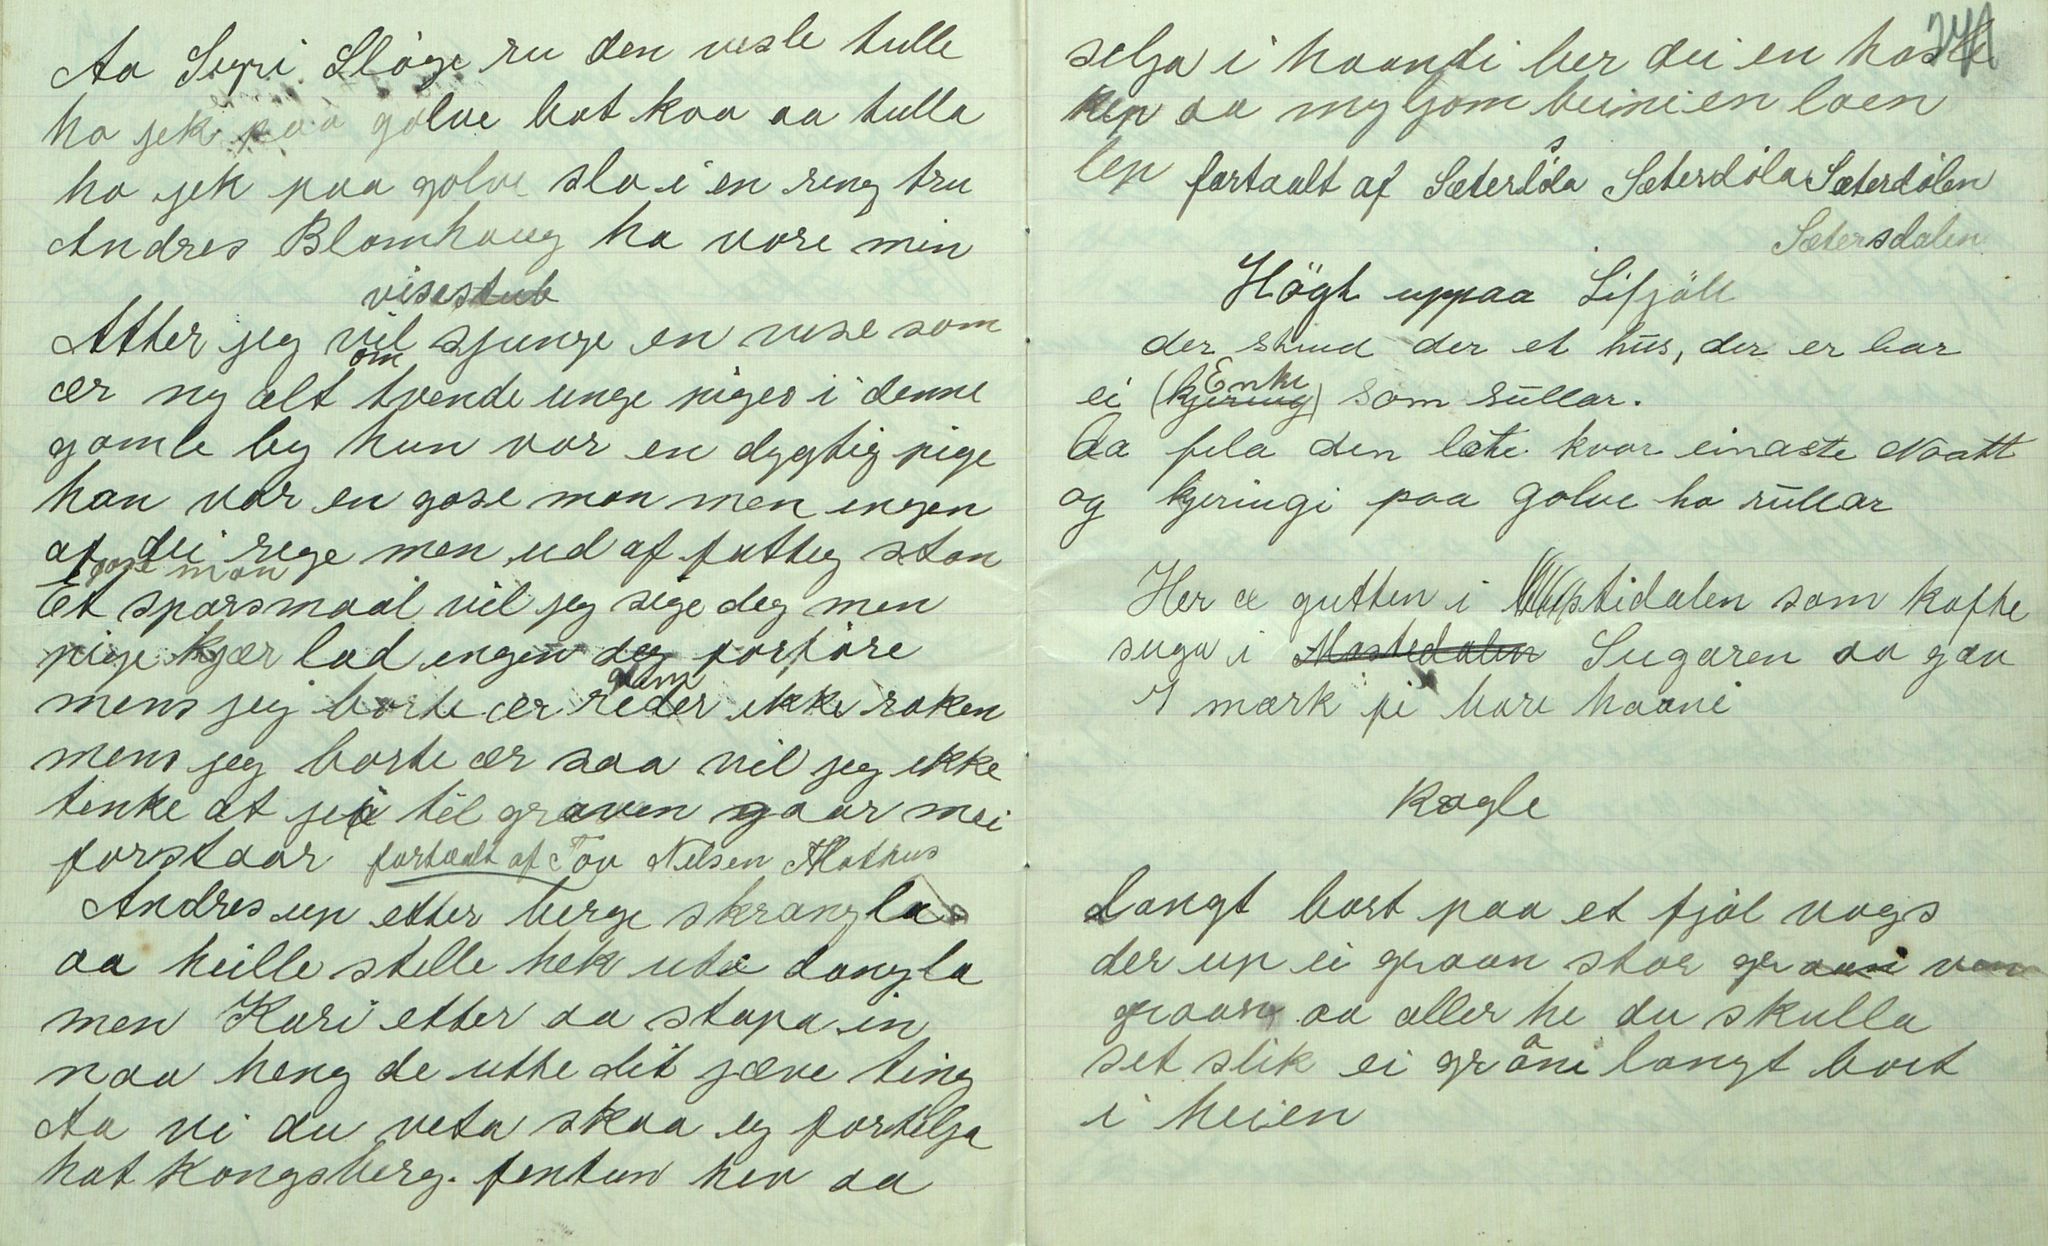 Aa Sigri Sløge ru den vesle tulle
ho jek paa golve bat kaa aa tulla
ho jek paa golve slo i en ring tru
Andres Blomhaug ha vore min
visestub
Atter jeg vil sjunge en vise som
ær ny alt om tvende unge piger i denne
gamle by hun var en dygtig pige
han var en gose man men ingen
af dei rege men ud af fattig stan
gose man
Et sparsmaal vil jeg sige deg men
pige kjær lad engen deg forføre
mens jeg borte ær reder ikke raken
mens jeg borte ær saa vil jeg ikke
tenke at jeg til graven gaar mei
forstaar fortaalt af Tov Nelsen Mathus
Andres up etter berge skrangla
aa heille stelle hek ute dangla
men Kari etter aa stapa in
naa heng de utte dit jæve ting
Aa vi du veta skaa eg fortelja
hat Kongsberg. fentun hev aa
241
selja i haandi ber dei en haste
kep aa myljom beinien laen
lep fortaalt af Sæterdøla Sæterdøla Sæterdølen
Sætersdalen
Högt uppaa Lifjäll
der stund der et hus, der er bar
ei (kjering) Enke som rullar.
Aa fela den læte kvar einaste Naatt
og kjeringi paa golve ho rullar
Her æ gutten i Uptidalen som kafte
suga i Mostedalen Sugaren aa gav
7 mark fe bare haane
Kogle
Langt bort paa et fjøl vogs
der up ei graan stor graani van
graan aa aller he du skulla
set slik ei gråni langt bort
i heien